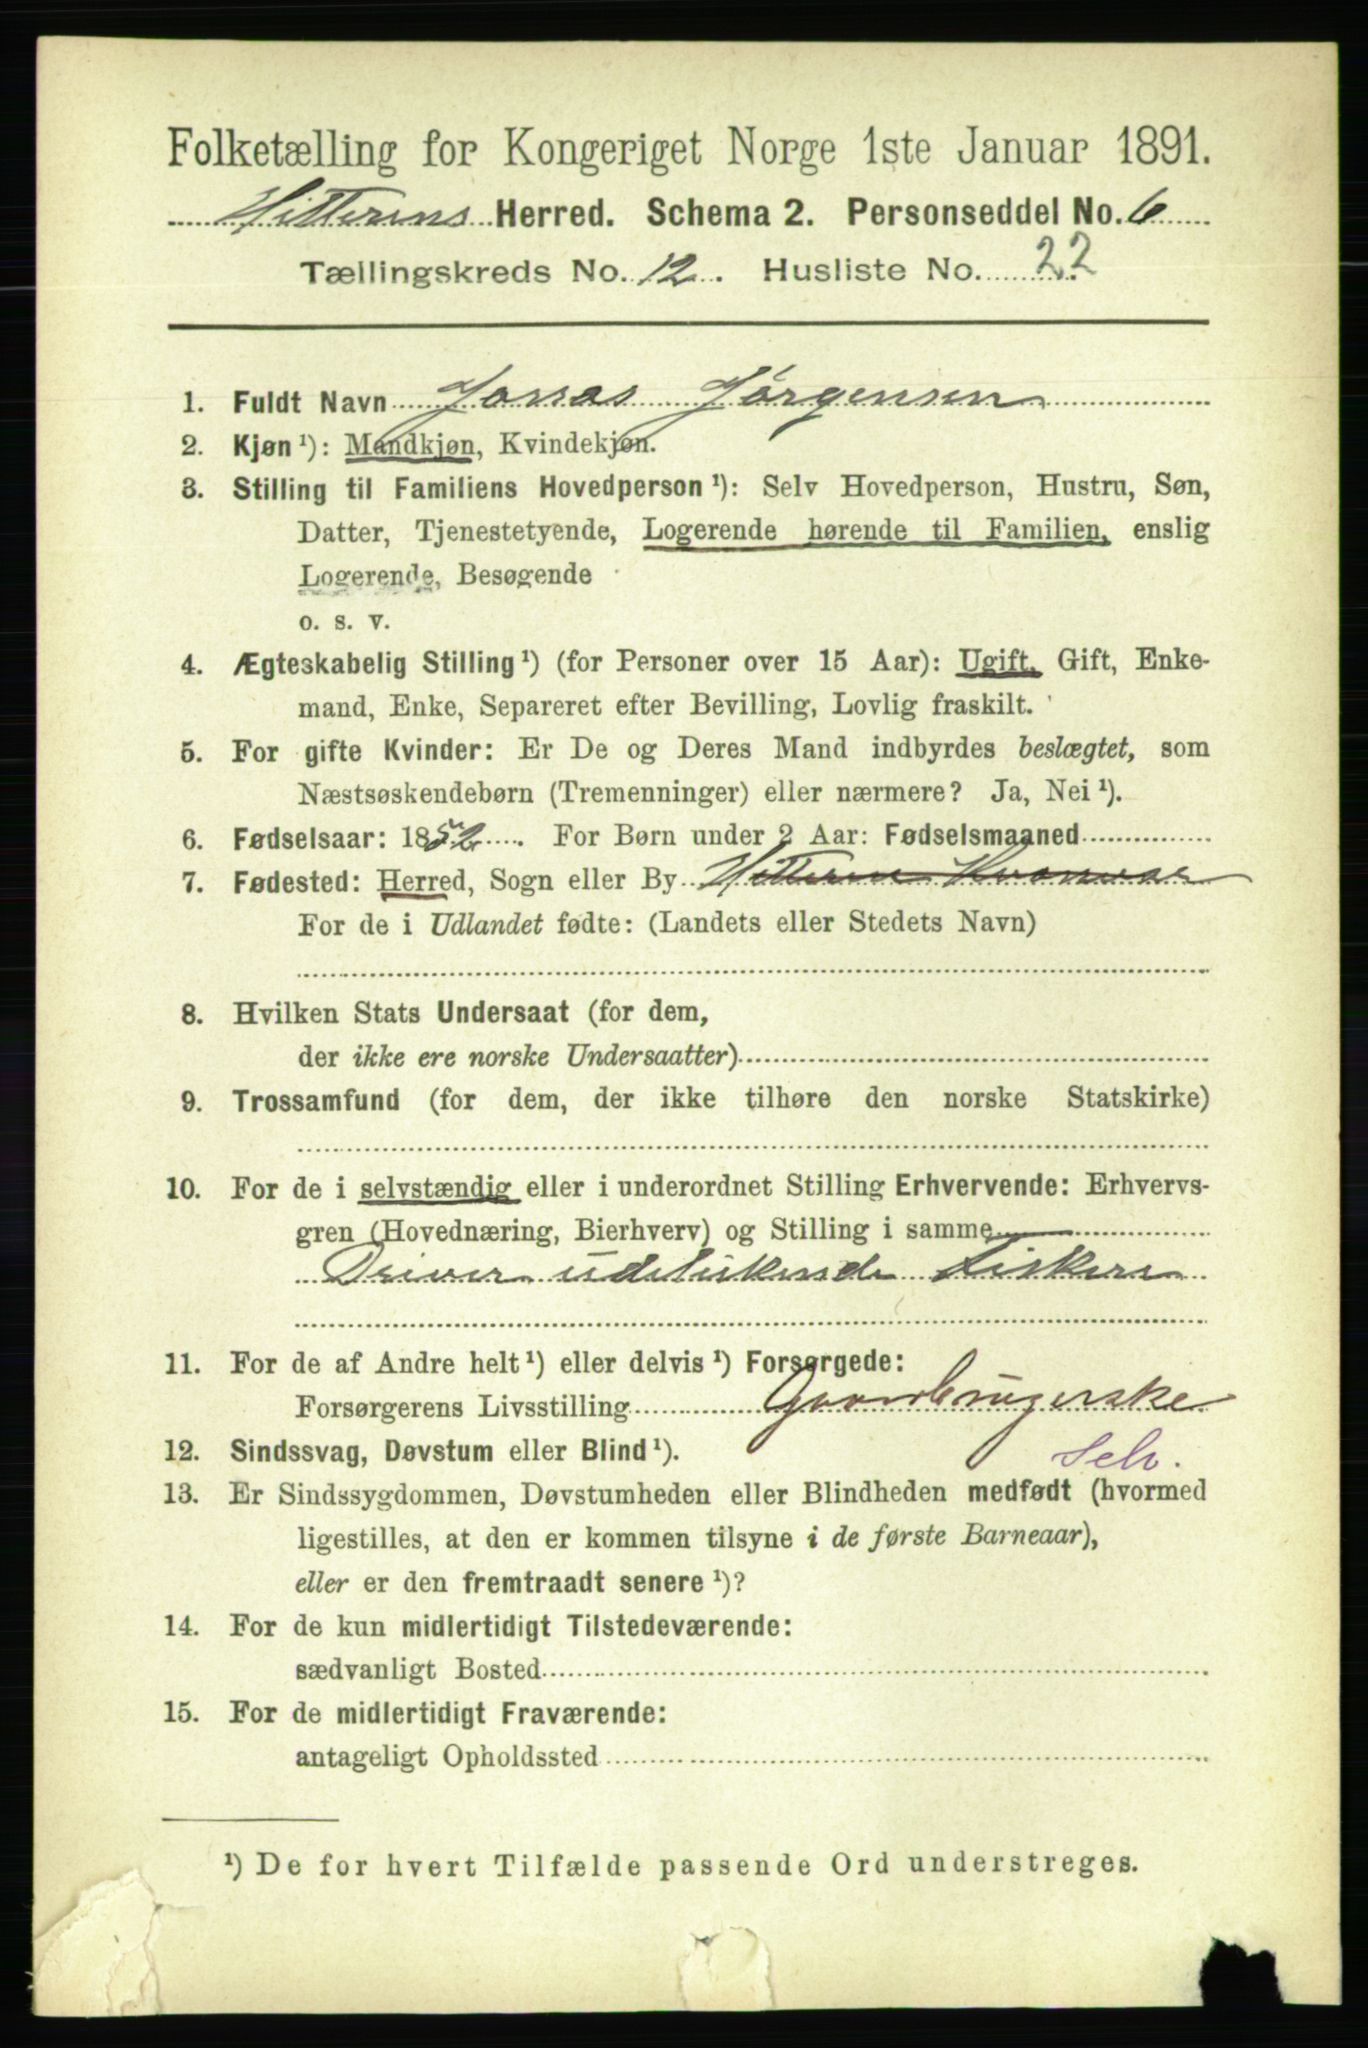 Folketælling for Kongeriget Norge 1ste Januar 1891.
Hitterens Herred. Schema 2. Personseddel No. 6
Tællingskreds No. 12. Husliste No. 22
1. Fuldt Navn Jonas Jørgensen
2. Kjøn ¹): Mandkjøn, Kvindekjøn.
3. Stilling til Familiens Hovedperson ¹): Selv Hovedperson, Hustru, Søn,
Datter, Tjenestetyende, Logerende hørende til Familien, enslig
Logerende, Besøgende
o. s. v.
4. Ægteskabelig Stilling ¹) (for Personer over 15 Aar): Ugift, Gift, Enke-
mand, Enke, Separeret efter Bevilling, Lovlig fraskilt.
5. For gifte Kvinder: Er De og Deres Mand indbyrdes beslægtet, som
Næstsøskendebørn (Tremenninger) eller nærmere? Ja, Nei ¹).
6. Fødselsaar: 1852. For Børn under 2 Aar: Fødselsmaaned
7. Fødested: Herred, Sogn eller By Hitteren
For de i Udlandet fødte: (Landets eller Stedets Navn)
8. Hvilken Stats Undersaat (for dem,
der ikke ere norske Undersaatter)
9. Trossamfund (for dem, der ikke tilhøre den norske Statskirke)
10. For de i selvstændig eller i underordnet Stilling Erhvervende: Erhvervs-
gren (Hovednæring, Bierhverv) og Stilling i samme
Driver udelukkende Fiskeri
11. For de af Andre helt ¹) eller delvis ¹) Forsørgede:
Forsørgerens Livsstilling Gaardbrugerske
12. Sindssvag, Døvstum eller Blind ¹). Selv.
13. Er Sindssygdommen, Døvstumheden eller Blindheden medfødt (hvormed
ligestilles, at den er kommen tilsyne i de første Barneaar),
eller er den fremtraadt senere ¹)?
14. For de kun midlertidigt Tilstedeværende:
sædvanligt Bosted
15. For de midlertidigt Fraværende:
antageligt Opholdssted
¹) De for hvert Tilfælde passende Ord understreges.